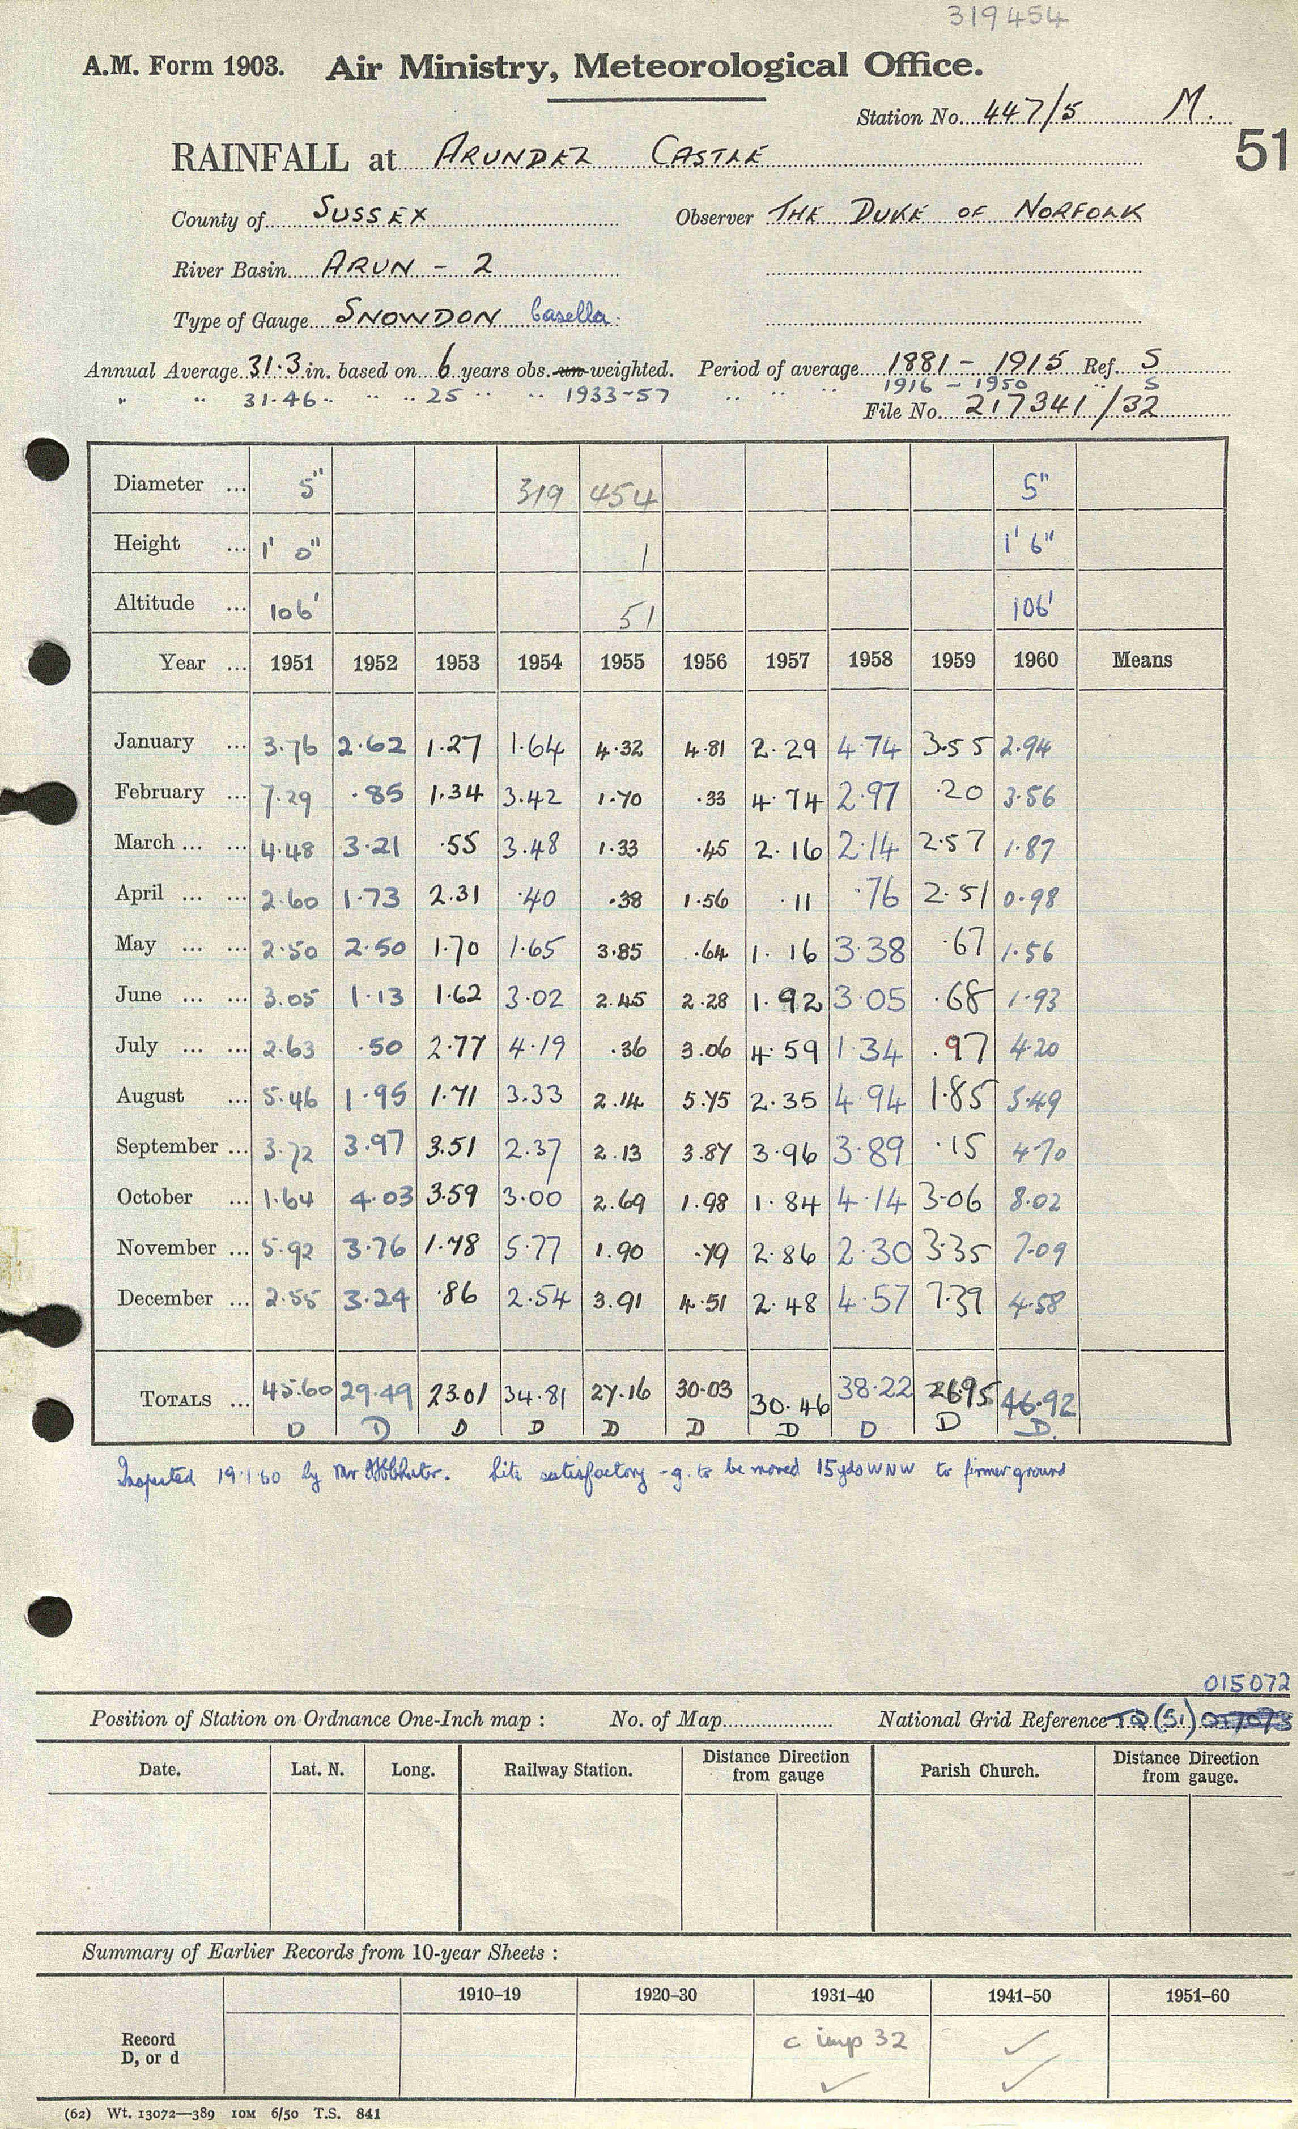 319454
A.M. Form 1903. Air Ministry, Meteorological Office.
Station No. 447/5 M.
51
RAINFALL at ARUNDEL CASTLE
County of SUSSEX Observer THE DUKE OF NORFOLK
River Basin ARUN - 2
Type of Gauge SNOWDON Casella.
Annual Average 31.3 in. based on 6 years obs. un-weighted. Period of average 1881 - 1915 Ref. S
" " 31.46 " " " 25 " " 1933-57 " " " 1916 - 1950 " S
File No. 217341/32
Diameter ... 5" 319 454 5"
Height ... 1' 0" 1 1' 6"
Altitude ... 106' 51 106'
Year ... 1951 1952 1953 1954 1955 1956 1957 1958 1959 1960 Means
January ... 3.76 2.62 1.27 1.64 4.32 4.81 2.29 4.74 3.55 2.94
February ... 7.29 .85 1.34 3.42 1.70 .33 4.74 2.97 .20 3.56
March ... ... 4.48 3.21 .55 3.48 1.33 .45 2.16 2.14 2.57 1.87
April ... ... 2.60 1.73 2.31 .40 .38 1.56 .11 .76 2.51 0.98
May ... ... 2.50 2.50 1.70 1.65 3.85 .64 1.16 3.38 .67 1.56
June ... ... 3.05 1.13 1.62 3.02 2.45 2.28 1.92 3.05 .68 1.93
July ... ... 2.63 .50 2.77 4.19 .36 3.06 4.59 1.34 .97 4.20
August ... 5.46 1.95 1.71 3.33 2.14 5.75 2.35 4.94 1.85 5.49
September ... 3.72 3.97 3.51 2.37 2.13 3.87 3.96 3.89 .15 4.70
October ... 1.64 4.03 3.59 3.00 2.69 1.98 1.84 4.14 3.06 8.02
November ... 5.92 3.76 1.78 5.77 1.90 .79 2.86 2.30 3.35 7.09
December ... 2.55 3.24 .86 2.54 3.91 4.51 2.48 4.57 7.39 4.58
TOTALS ... 45.60 29.49 23.01 34.81 27.16 30.03 30.46 38.22 26.95 46.92
D D D D D D D D D D.
Inspected 19.1.60 by Mr. Site satisfactory - g. to be moved 15 yds WNW to firmer ground
015072
Position of Station on Ordnance One-Inch map : No. of Map National Grid Reference TQ (51)
Date. Lat. N. Long. Railway Station. Distance from Direction gauge Parish Church. Distance from Direction gauge.
Summary of Earlier Records from 10-year Sheets :
1910–19 1920–30 1931–40 1941–50 1951–60
Record D, or d c imp 32 ✓
✓ ✓
(62) Wt. 13072—389 10M 6/50 T.S. 841